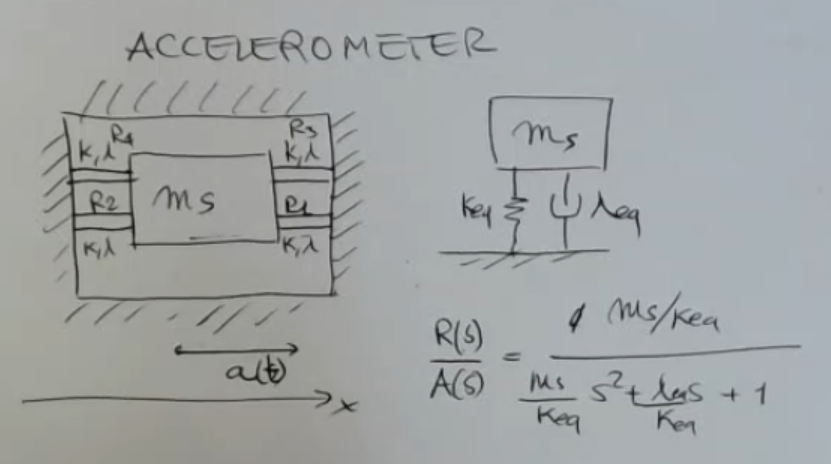 ACCELEROMETER
R4 R3
K,λ K,λ
ms
R2 R1
K,λ K,λ
a(t)
x
ms
Keq λeq
R(s)/A(s) = ms/Keq / ms/Keq s² + λeq s/Keq + 1